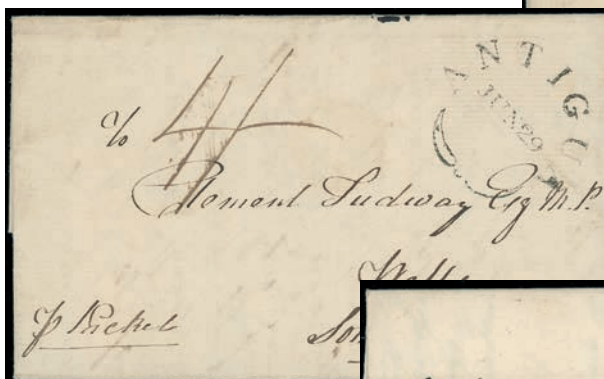 ANTIGU
JUN 29
4/
Clement Tudway Esq M.P.
Wells
p Packet